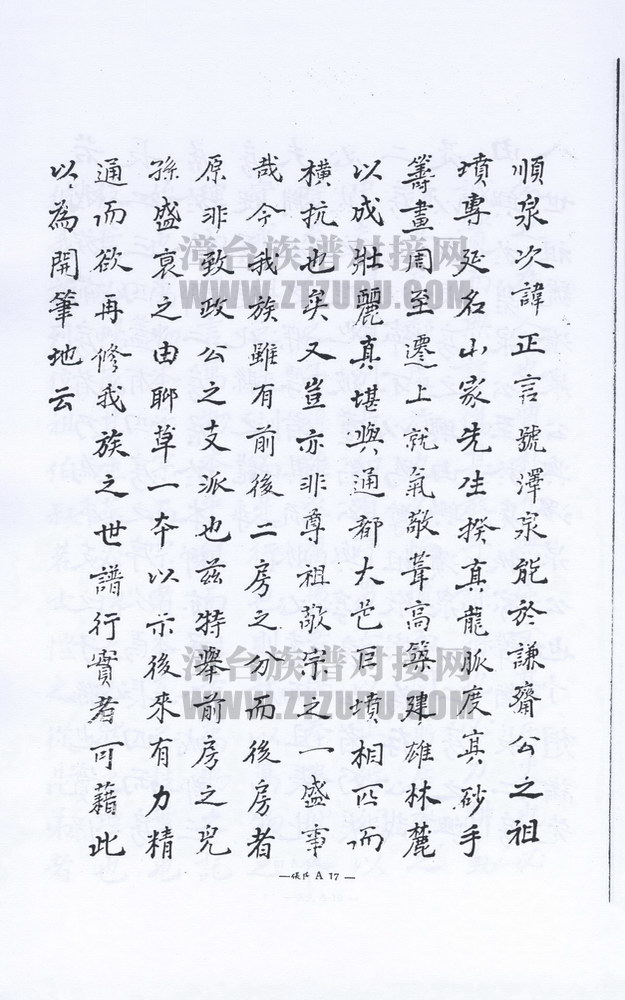 順泉次諱正言號澤泉能於謙齋公之祖
墳專延名山家先生揆真龍脈度真砂手
籌畫周至遷上就氣敬葺高築建雄林麓
以成壯麗真堪與通都大邑巨墳相匹而
橫抗也矣又豈亦非尊祖敬宗之一盛事
哉今我族雖有前後二房之分而後房者
原非致政公之支派也茲特舉前房之兒
孫盛衰之由聊草一本以示後來有力精
通而欲再修我族之世譜行實者可藉此
以為開筆地云
漳台族谱对接网
WWW.ZTZUPU.COM
漳台族谱对接网
WWW.ZTZUPU.COM
A 17